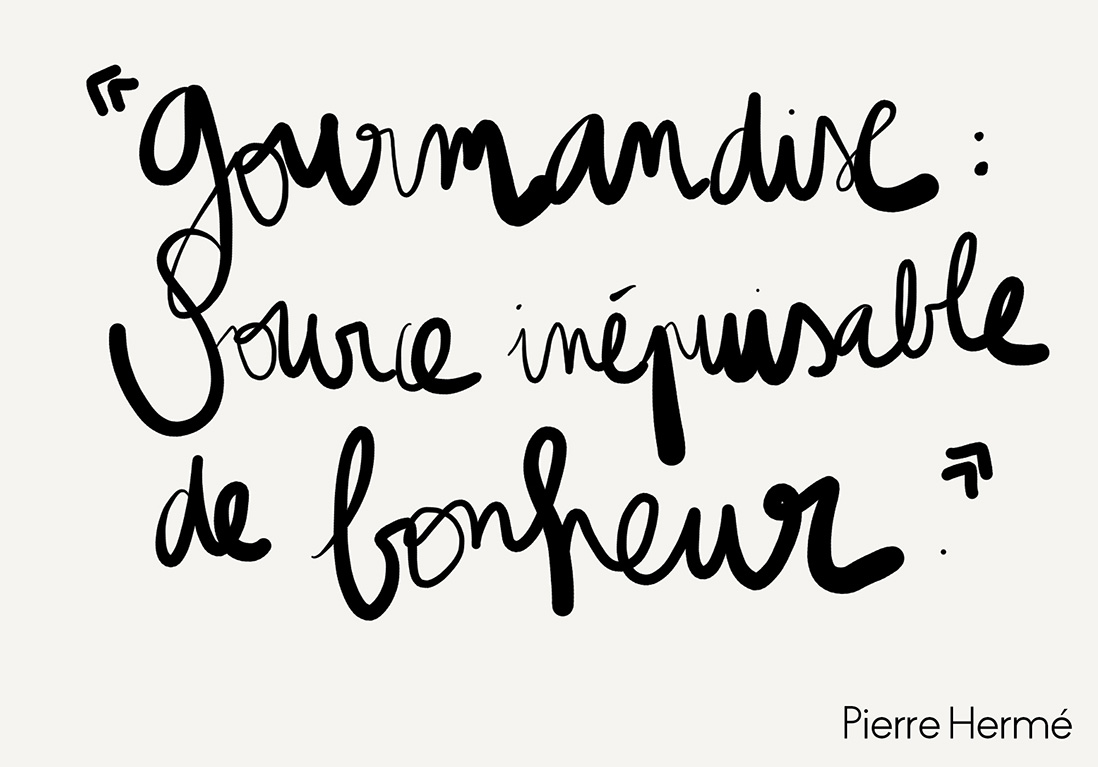 « gourmandise :
Source inépuisable
de bonheur. »
Pierre Hermé